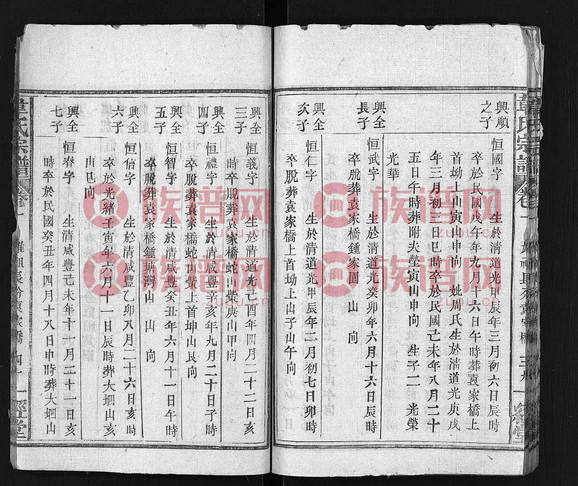 韋氏宗譜 卷十
興順之子
恒國字 生於清道光甲辰年三月初六日辰時
卒於民國戊午年九月十六日午時葬袁家橋上
首坳上山寅山申向 娩周氏生於清道光庚戌
年三月初三日巳時卒於民國己未年八月二十
五日午時葬附夫塋寅山申向 生子二 光榮
光華
興全長子
恒武字 生於清道光癸卯年六月十六日辰時
卒脫葬袁家橋鍾家園 山 向
興全次子
恒仁字 生於清道光甲辰年二月初七日卯時
卒脫葬袁家橋上首坳上山子山午向
興全三子
恒義字 生於清道光己酉年四月二十二日戌
時卒脫葬袁家橋蛇山蒂庚山甲向
興全四子
恒禮字 生於清咸豐辛亥年九月二十日子時
卒脫葬袁家橋蛇山蒂上首坤山艮向
興全五子
恒智字 生於清咸豐癸丑年六月十一日午時
卒脫葬袁家橋鍾塘灣山 山 向
興全六子
恒信字 生於清咸豐乙卯年八月二十六日亥時
卒於光緒壬寅年六月十一日辰時葬大垇山亥
山巳向
興全七子
恒春字 生於清咸豐己未年十一月二十一日亥
時卒於民國癸丑年四月十八日申時葬大垇山
韋氏宗譜 卷十
一經堂
族譜网
zupu.cn